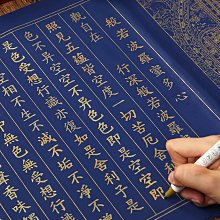 般若波羅蜜多心
觀自在 行深般若波羅蜜多
照見五蘊皆空度一切苦厄舍利子
色不異空空不異色色即是空空即
是色受想行識亦復如是舍利子是
空相不生不滅不垢不淨不增
色無受想行
香味